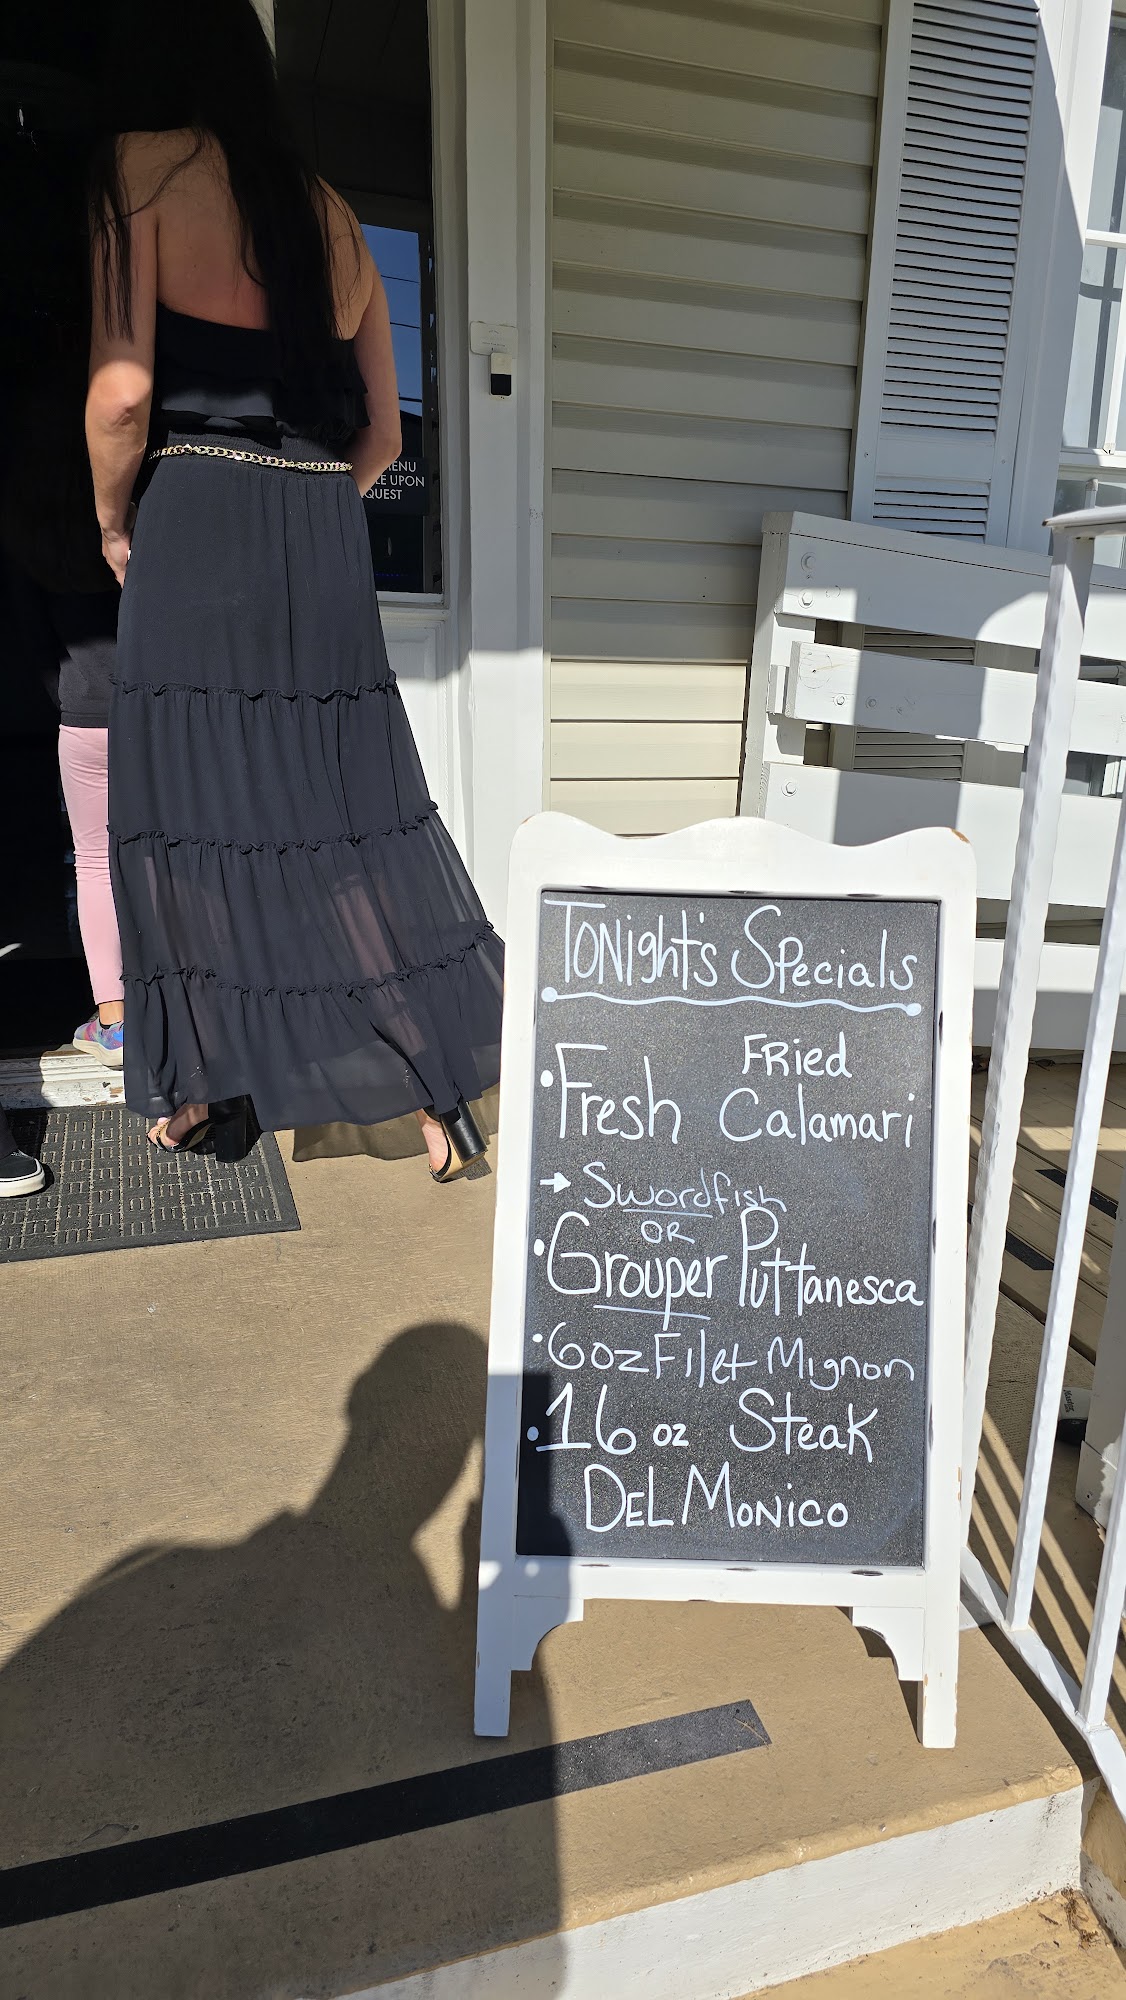 MENU
UPON
QUEST
Tonight's Specials
Fried
• Fresh Calamari
→ Swordfish
OR
• Grouper Puttanesca
• 6oz Filet Mignon
• 16 oz Steak
DelMonico